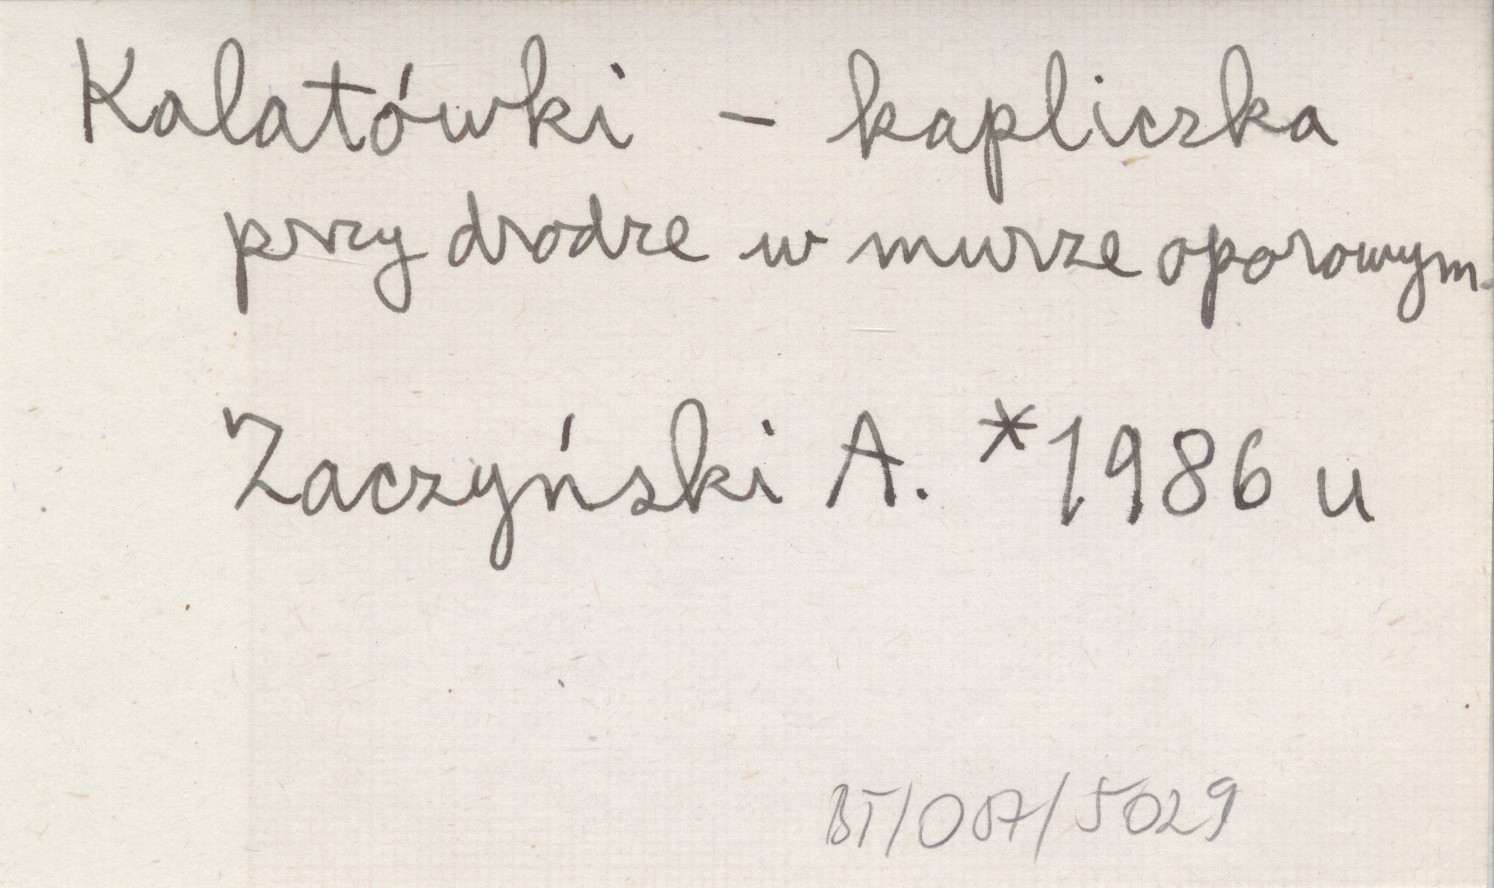 Kalatówki - kapliczka
przy drodze w murze oporowym.
Zaczyński A. *1986 u
BT/007/5029